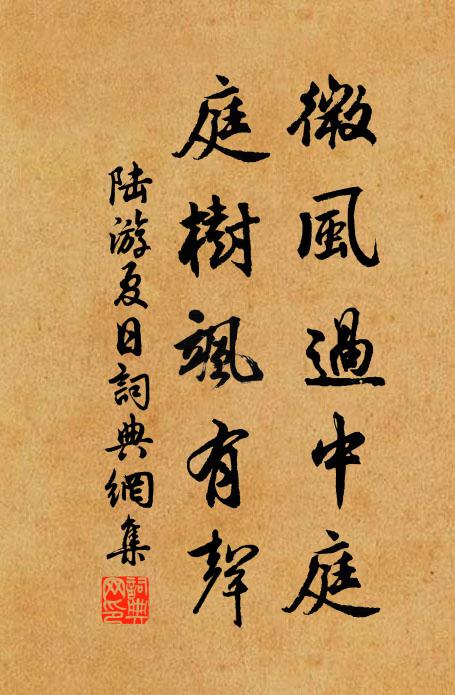 微風過中庭
庭樹颯有聲
陆游夏日詞典網集
詞典网印